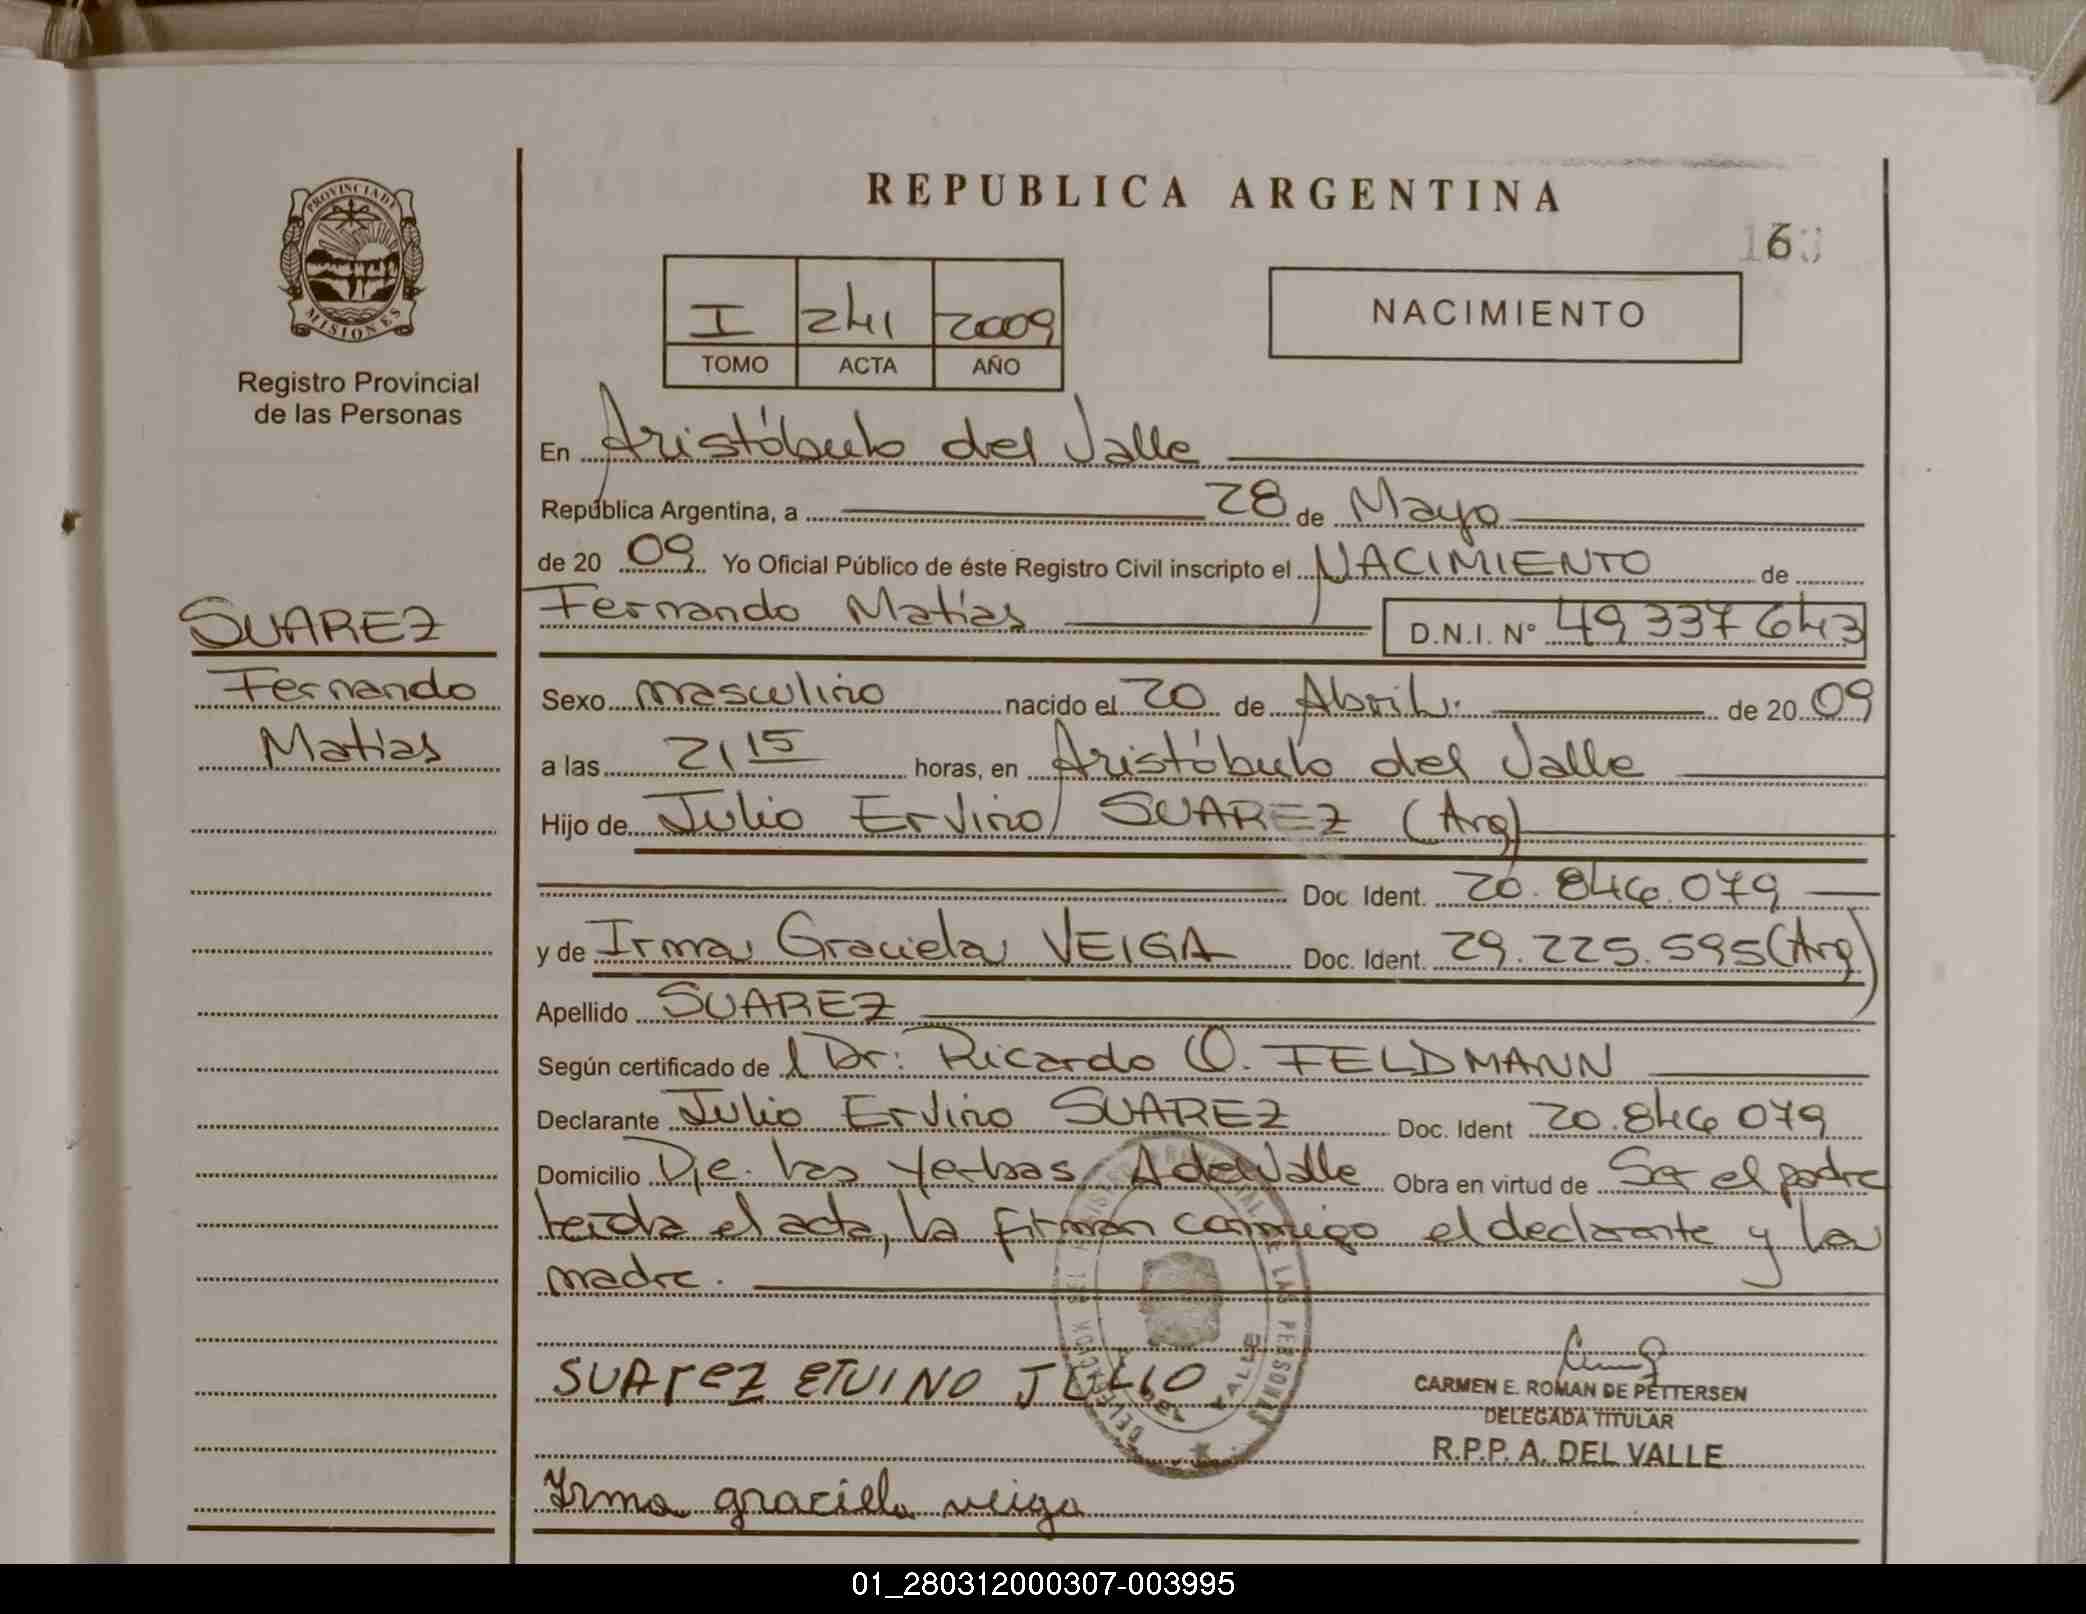 REPUBLICA ARGENTINA
PROVINCIA DE
MISIONES
Registro Provincial
de las Personas
I 241 2009
TOMO ACTA AÑO
NACIMIENTO
En Aristóbulo del Valle
República Argentina, a 28 de Mayo
de 20 09 Yo Oficial Público de éste Registro Civil inscripto el NACIMIENTO de
Fernando Matias D.N.I. Nº 49337643
SUAREZ
Fernando
Matias
Sexo masculino nacido el 20 de Abril.- de 20 09
a las 21 15 horas, en Aristóbulo del Valle
Hijo de Julio Ervino SUAREZ (Arg)
Doc. Ident. 20.846.079
y de Irma Graciela VEIGA Doc. Ident. 29.225.595 (Arg)
Apellido SUAREZ
Según certificado de l Dr: Ricardo O. FELDMANN
Declarante Julio Ervino SUAREZ Doc. Ident 20.846 079
Domicilio Pje. las Yerbas A del Valle Obra en virtud de Ser el padre
leida el acta, la firman conmigo el declarante y la
madre.
SUArEZ ErUINO JULIO
CARMEN E. ROMAN DE PETTERSEN
DELEGADA TITULAR
R.P.P. A. DEL VALLE
Irma graciela veiga
01_280312000307-003995